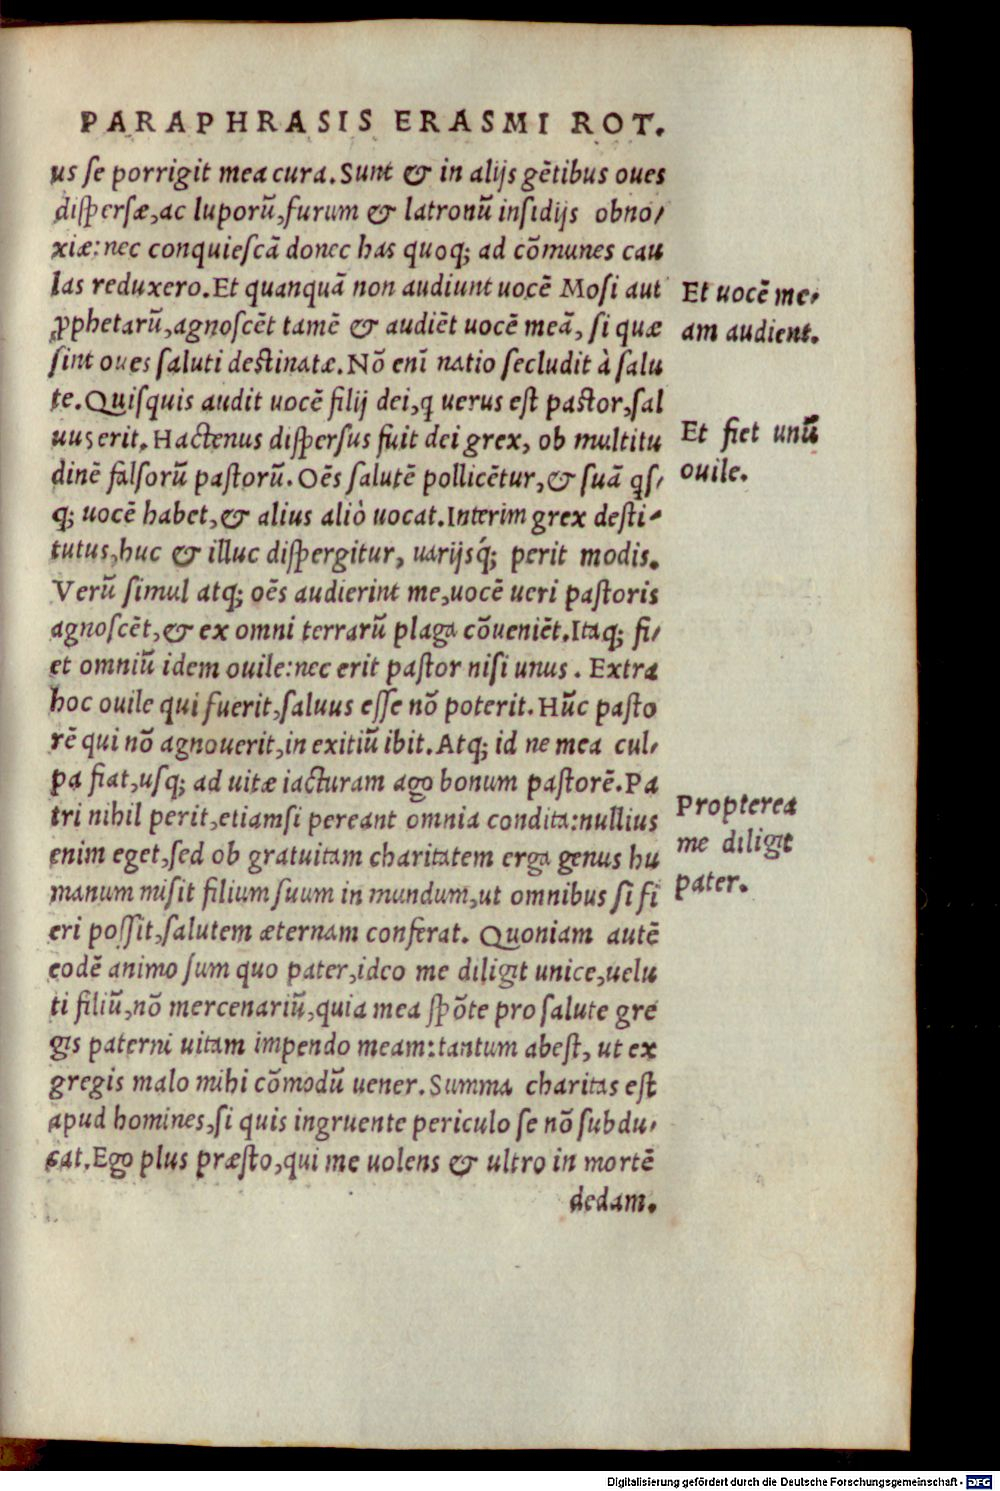 PARAPHRASIS ERASMI ROT.
us se porrigit mea cura. Sunt & in alijs gẽtibus oues
dispersæ, ac luporũ, furum & latronũ insidijs obno/
xiæ: nec conquiescã donec has quoq; ad cõmunes cau
las reduxero. Et quanquã non audiunt uocẽ Mosi aut
ꝓphetarũ, agnoscẽt tamẽ & audiẽt uocẽ meã, si quæ
sint oues saluti destinatæ. Nõ enĩ natio secludit à salu
te. Quisquis audit uocẽ filij dei, q̃ uerus est pastor, sal
uus erit. Hactenus dispersus fuit dei grex, ob multitu
dinẽ falsorũ pastorũ. Oẽs salutẽ pollicẽtur, & suã qs/
q; uocẽ habet, & alius aliò uocat. Interim grex desti-
tutus, huc & illuc dispergitur, uarijsq́; perit modis.
Verũ simul atq; oẽs audierint me, uocẽ ueri pastoris
agnoscẽt, & ex omni terrarũ plaga cõueniẽt. Itaq; fi/
et omniũ idem ouile: nec erit pastor nisi unus. Extra
hoc ouile qui fuerit, saluus esse nõ poterit. Hũc pasto
rẽ qui nõ agnouerit, in exitiũ ibit. Atq; id ne mea cul/
pa fiat, usq; ad uitæ iacturam ago bonum pastorẽ. Pa
tri nihil perit, etiamsi pereant omnia condita: nullius
enim eget, sed ob gratuitam charitatem erga genus hu
manum misit filium suum in mundum, ut omnibus si fi
eri possit, salutem æternam conferat. Quoniam autẽ
eodẽ animo sum quo pater, ideo me diligit unice, uelu
ti filiũ, nõ mercenariũ, quia mea spõte pro salute gre
gis paterni uitam impendo meam: tantum abest, ut ex
gregis malo mihi cõmodũ uener. Summa charitas est
apud homines, si quis ingruente periculo se nõ subdu/
cat. Ego plus præsto, qui me uolens & ultro in mortẽ
dedam.
Et uocẽ me/
am audient.
Et fiet unũ
ouile.
Propterea
me diligit
pater.
Digitalisierung gefördert durch die Deutsche Forschungsgemeinschaft - DFG